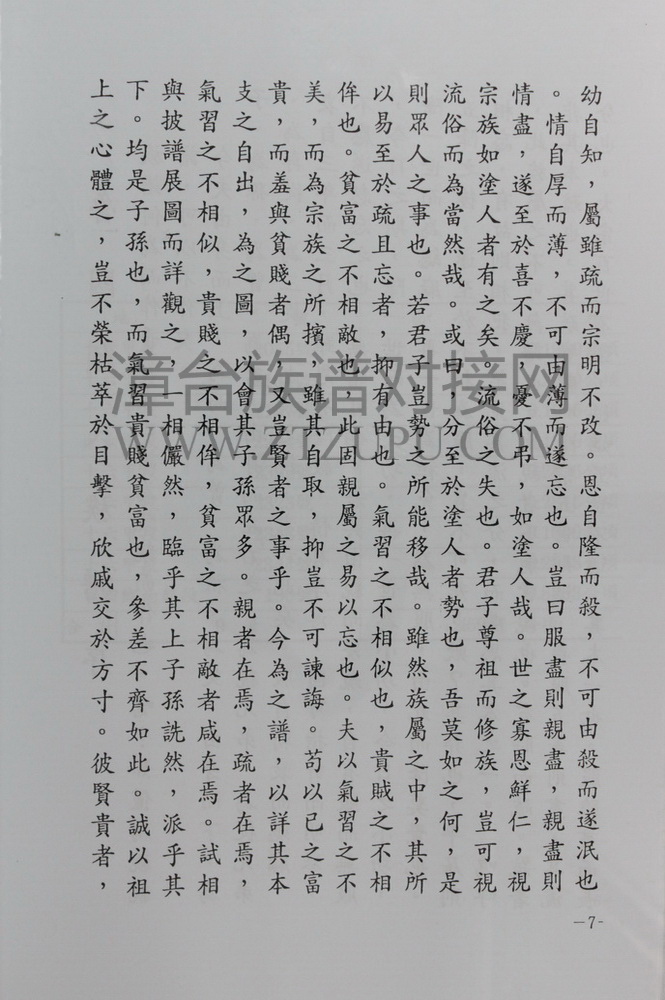 幼自知，屬雖疏而宗明不改。恩自隆而殺，不可由殺而遂泯也
。情自厚而薄，不可由薄而遂忘也。豈曰服盡則親盡，親盡則
情盡，遂至於喜不慶，憂不弔，如塗人哉。世之寡恩鮮仁，視
宗族如塗人者有之矣。流俗之失也。君子尊祖而修族，豈可視
流俗而為當然哉。或曰，分至於塗人者勢也，吾莫如之何，是
則眾人之事也。若君子豈勢之所能移哉。雖然族屬之中，其所
以易至於疏且忘者，抑有由也。氣習之不相似也，貴賊之不相
侔也。貧富之不相敵也，此固親屬之易以忘也。夫以氣習之不
美，而為宗族之所擯，雖其自取，抑豈不可諫誨。苟以已之富
貴，而羞與貧賤者偶，又豈賢者之事乎。今為之譜，以詳其本
支之自出，為之圖，以會其子孫眾多。親者在焉，疏者在焉，
氣習之不相似，貴賤之不相侔，貧富之不相敵者咸在焉。試相
與披譜展圖而詳觀之，一相儼然，臨乎其上子孫詵然，派乎其
下。均是子孫也，而氣習貴賤貧富也，參差不齊如此。誠以祖
上之心體之，豈不榮枯萃於目擊，欣戚交於方寸。彼賢貴者，
-7-
漳台族谱对接网
WWW.ZTZUPU.COM